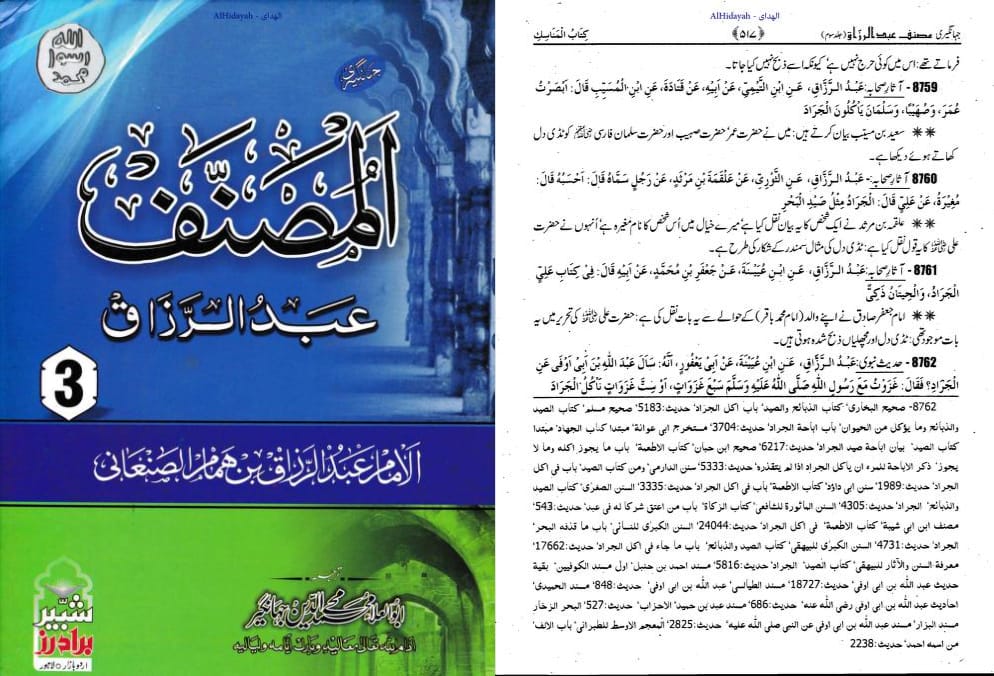 AlHidayah - الهداى
الله
رسول
محمد
جہانگیری
المصنف
عبد الرزاق
3
الامام عبد الرزاق بن همام الصنعانی
ترجمہ
ابوالعلاء محمد محی الدین جہانگیر
ادام اللہ تعالیٰ معالیہ وبارک ایامہ ولیالیہ
شبیر
برادرز
اردو بازار لاہور
AlHidayah - الهداى
جہانگیری مصنف عبد الرزاق (جلد سوم)
﴿۵۱۷﴾
كِتَابُ الْمَنَاسِكِ
فرماتے تھے: اس میں کوئی حرج نہیں ہے، کیونکہ اسے ذبح نہیں کیا جاتا۔
8759 - آثارِ صحابہ: عَبْدُ الرَّزَّاقِ، عَنِ ابْنِ التَّيْمِيِّ، عَنْ اَبِيْهِ، عَنْ قَتَادَةَ، عَنِ ابْنِ الْمُسَيِّبِ قَالَ: اَبْصَرْتُ
عُمَرَ، وَصُهَيْبًا، وَسَلْمَانَ يَاْكُلُوْنَ الْجَرَادَ
** سعید بن مسیب بیان کرتے ہیں: میں نے حضرت عمر، حضرت صہیب اور حضرت سلمان فارسی رضی اللہ عنہم کو ٹڈی دل
کھاتے ہوئے دیکھا ہے۔
8760 - آثارِ صحابہ: - عَبْدُ الرَّزَّاقِ، عَنِ الثَّوْرِيِّ، عَنْ عَلْقَمَةَ بْنِ مَرْثَدٍ، عَنْ رَجُلٍ سَمَّاهُ قَالَ: اَحْسَبُهُ قَالَ:
مُغِيْرَةُ، عَنْ عَلِيٍّ قَالَ: الْجَرَادُ مِثْلُ صَيْدِ الْبَحْرِ
** علقمہ بن مرثد نے ایک شخص کا یہ بیان نقل کیا ہے، میرے خیال میں اُس شخص کا نام مغیرہ ہے، اُنہوں نے حضرت
علی رضی اللہ عنہ کا یہ قول نقل کیا ہے: ٹڈی دل کی مثال سمندر کے شکار کی طرح ہے۔
8761 - آثارِ صحابہ: عَبْدُ الرَّزَّاقِ، عَنِ ابْنِ عُيَيْنَةَ، عَنْ جَعْفَرِ بْنِ مُحَمَّدٍ، عَنْ اَبِيْهِ قَالَ: فِي كِتَابِ عَلِيٍّ
الْجَرَادُ، وَالْحِيتَانُ ذَكِيٌّ
** امام جعفر صادق نے اپنے والد (امام محمد باقر) کے حوالے سے یہ بات نقل کی ہے: حضرت علی رضی اللہ عنہ کی تحریر میں یہ
بات موجود تھی: ٹڈی دل اور مچھلیاں ذبح شدہ ہوتی ہیں۔
8762 - حدیث نبوی: عَبْدُ الرَّزَّاقِ، عَنِ ابْنِ عُيَيْنَةَ، عَنْ اَبِيْ يَعْفُورٍ، اَنَّهُ: سَاَلَ عَبْدَ اللّٰهِ بْنَ اَبِيْ اَوْفَى عَنِ
الْجَرَادِ؟ فَقَالَ: غَزَوْتُ مَعَ رَسُولِ اللّٰهِ صَلَّى اللّٰهُ عَلَيْهِ وَسَلَّمَ سَبْعَ غَزَوَاتٍ، اَوْ سِتَّ غَزَوَاتٍ نَاْكُلُ الْجَرَادَ
8762- صحیح البخاری، کتاب الذبائح والصید، باب اکل الجراد، حدیث:5183، صحیح مسلم، کتاب الصید
والذبائح وما يؤکل من الحيوان، باب اباحة الجراد، حدیث:3704، مستخرج ابی عوانة، مبتدا کتاب الجهاد، مبتدا
کتاب الصید، بیان اباحة صید الجراد، حدیث:6217، صحیح ابن حبان، کتاب الاطعمة، باب ما یجوز اکله وما لا
یجوز، ذکر الاباحة للمرء ان یاکل الجراد اذا لم یتقذرہ، حدیث:5333، سنن الدارمی، ومن کتاب الصید، باب فی اکل
الجراد، حدیث:1989، سنن ابی داؤد، کتاب الاطعمة، باب فی اکل الجراد، حدیث:3335، السنن الصغری، کتاب الصید
والذبائح، الجراد، حدیث:4305، السنن الماثورة للشافعی، کتاب الزکاة، باب من اعتق شرکا له فی عبد، حدیث:543،
مصنف ابن ابی شیبة، کتاب الاطعمة، فی اکل الجراد، حدیث:24044، السنن الکبری للنسائی، باب ما قذفه البحر،
الجراد، حدیث:4731، السنن الکبری للبیهقی، کتاب الصید والذبائح، باب ما جاء فی اکل الجراد، حدیث:17662،
معرفة السنن والآثار للبیهقی، کتاب الصید، الجراد، حدیث:5816، مسند احمد بن حنبل، اول مسند الکوفیین، بقیة
حدیث عبد الله بن ابی اوفی، حدیث:18727، مسند الطیالسی، عبد الله بن ابی اوفی، حدیث:848، مسند الحمیدی،
احادیث عبد الله بن ابی اوفی رضی الله عنه، حدیث:686، مسند عبد بن حمید، الاحزاب، حدیث:527، البحر الزخار
مسند البزار، مسند عبد الله بن ابی اوفی عن النبی صلی الله علیه، حدیث:2825، المعجم الاوسط للطبرانی، باب الالف،
من اسمه احمد، حدیث:2238